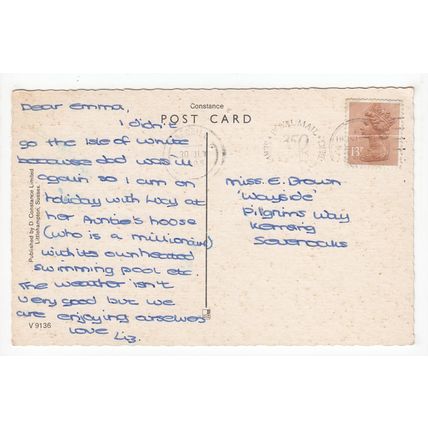 Constance
POST CARD
Dear Emma,
I didn't
go the Isle of White
because dad was ill
again so I am on
holiday with Lucy at
her Auntie's hoose
(who is a millionaire)
with its own heated
swimming pool etc.
The weather isn't
very good but we
are enjoying ourselves
love Liz.
Miss E. Brown
"Wayside"
Pilgrims Way
Kemsing
Sevenoaks
13P
ROYAL MAIL
350
Published by D. Constance Limited
Littlehampton, Sussex.
V 9136